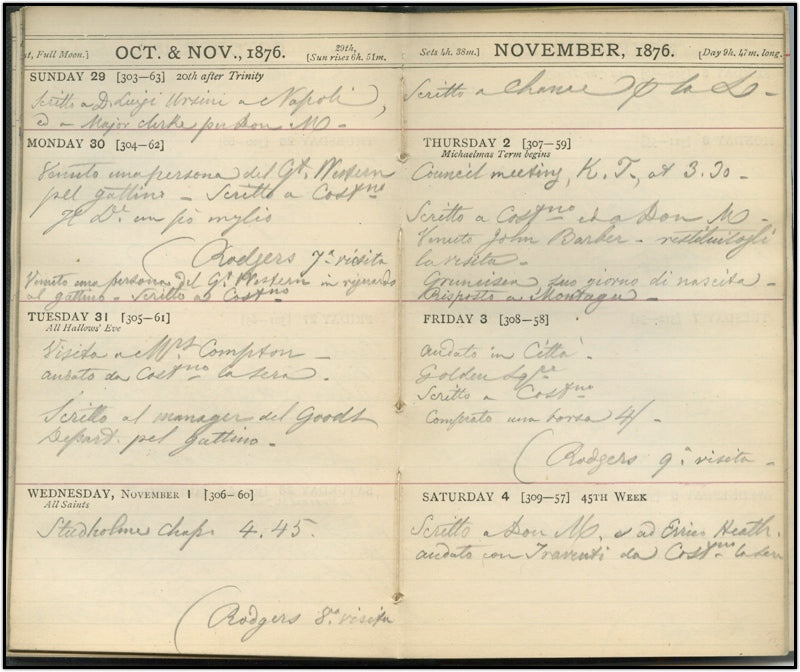 st, Full Moon.]
OCT. & NOV., 1876.
29th,
[Sun rises 6h. 51m.
SUNDAY 29 [303–63] 20th after Trinity
Scritto a D. Luigi Ursini a Napoli,
ed a Major Clerke per Don M –
MONDAY 30 [304–62]
Venuto una persona del Gt. Western
pel gattino – Scritto a Costno
Il Dr. un pò mylio
(Rodgers 7a visita
Venuto una persona del Gt. Western in riguardo
al gattino – Scritto a Costno –
TUESDAY 31 [305–61]
All Hallows' Eve
Visita a Mrs Compton –
andato da Costno la sera.
Scritto al manager del Goods
Depart. pel gattino –
WEDNESDAY, NOVEMBER 1 [306–60]
All Saints
Studholme Chaps 4.45.
(Rodgers 8a visita
Sets 4h. 38m.]
NOVEMBER, 1876.
[Day 9h. 47m. long.
Scritto a Chance
THURSDAY 2 [307–59]
Michaelmas Term begins
Council meeting, K. T., at 3.30 –
Scritto a Costno ed a Don M –
Venuto John Barber – restituitogli
la visita –
Gruneisen suo giorno di nascita –
Risposto a Montagu –
FRIDAY 3 [308–58]
andato in Città.
Golden Sqre
Scritto a Costno
Comprato una borsa 4/–
(Rodgers 9a visita –
SATURDAY 4 [309–57] 45TH WEEK
Scritto a Don M, e ad Errico Heath.
andato con Traventi da Costno la sera